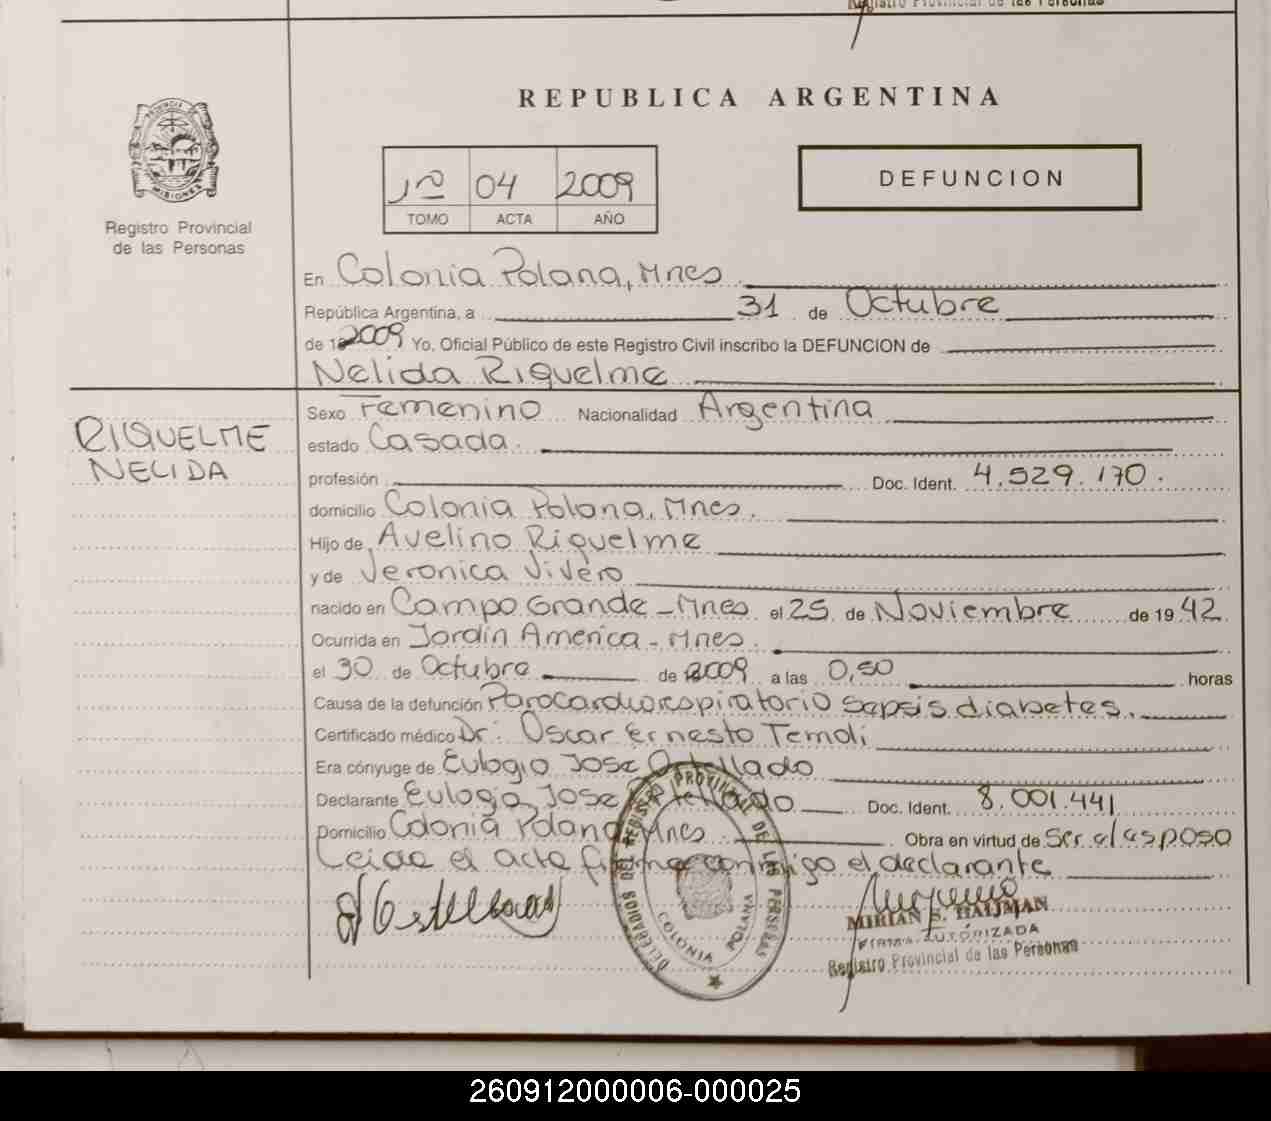 Registro Provincial de las Personas
REPUBLICA ARGENTINA
1º 04 2009
TOMO ACTA AÑO
DEFUNCION
PROVINCIA DE
MISIONES
Registro Provincial
de las Personas
En Colonia Polana, Mnes
República Argentina, a 31 de Octubre
de 2009 Yo, Oficial Público de este Registro Civil inscribo la DEFUNCION de
Nelida Riquelme
RIQUELME
NELIDA
Sexo Femenino Nacionalidad Argentina
estado Casada.
profesión Doc. Ident. 4.529.170.
domicilio Colonia Polana, Mnes.
Hijo de Avelino Riquelme
y de Veronica Vivero
nacido en Campo Grande - Mnes el 25 de Noviembre de 1942
Ocurrida en Jardin America - Mnes.
el 30 de Octubre de 2009 a las 0,50 horas
Causa de la defunción Parocardiorespiratorio sepsis diabetes.
Certificado médico Dr: Oscar Ernesto Temoli
Era cónyuge de Eulogio Jose Ostellado
Declarante Eulogio Jose Ostellado Doc. Ident. 8.001.441
Domicilio Colonia Polana Mnes Obra en virtud de Ser el esposo
Leida el acta firma conmigo el declarante
DELEGACION DEL REGISTRO PROVINCIAL DE LAS PERSONAS
COLONIA POLANA
MIRIAN S. HALJMAN
FIRMA AUTORIZADA
Registro Provincial de las Personas
260912000006-000025